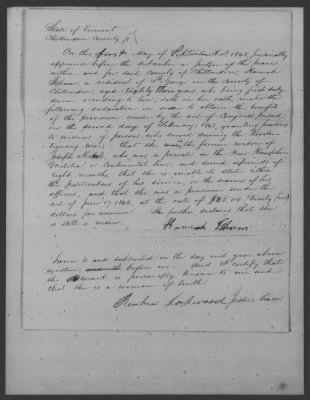 State of Vermont
Chittenden County
On this first day of September A.D. 1848, personally
appeared before the subscriber a Justice of the peace
within and for said County of Chittenden, Hannah
a resident of St. George in the County of
Chittenden, aged Eighty three years who being first duly
sworn according to law, doth on her oath, make the
following declaration in order to obtain the benefit
of the provision made by the act of Congress passed
on the second day of February 1848, granting pensions
to widows of persons who served during the Revolu-
tionary war: that she was the former widow of
Joseph who was a private in the New Hampshire
Militia or Continental line, and served upwards of
eight months, that she is unable to state either
the particulars of his service, or the names of his
officers, and that she was a pensioner under the
act of June 17, 1844, at the rate of
dollars per annum. She further declares that she
is still a widow.
Hannah
Sworn to and subscribed on the day and year above
written before me. And I certify that
the is personally known to me and
that she is a woman of truth.
Reuben Lockwood Justice Peace